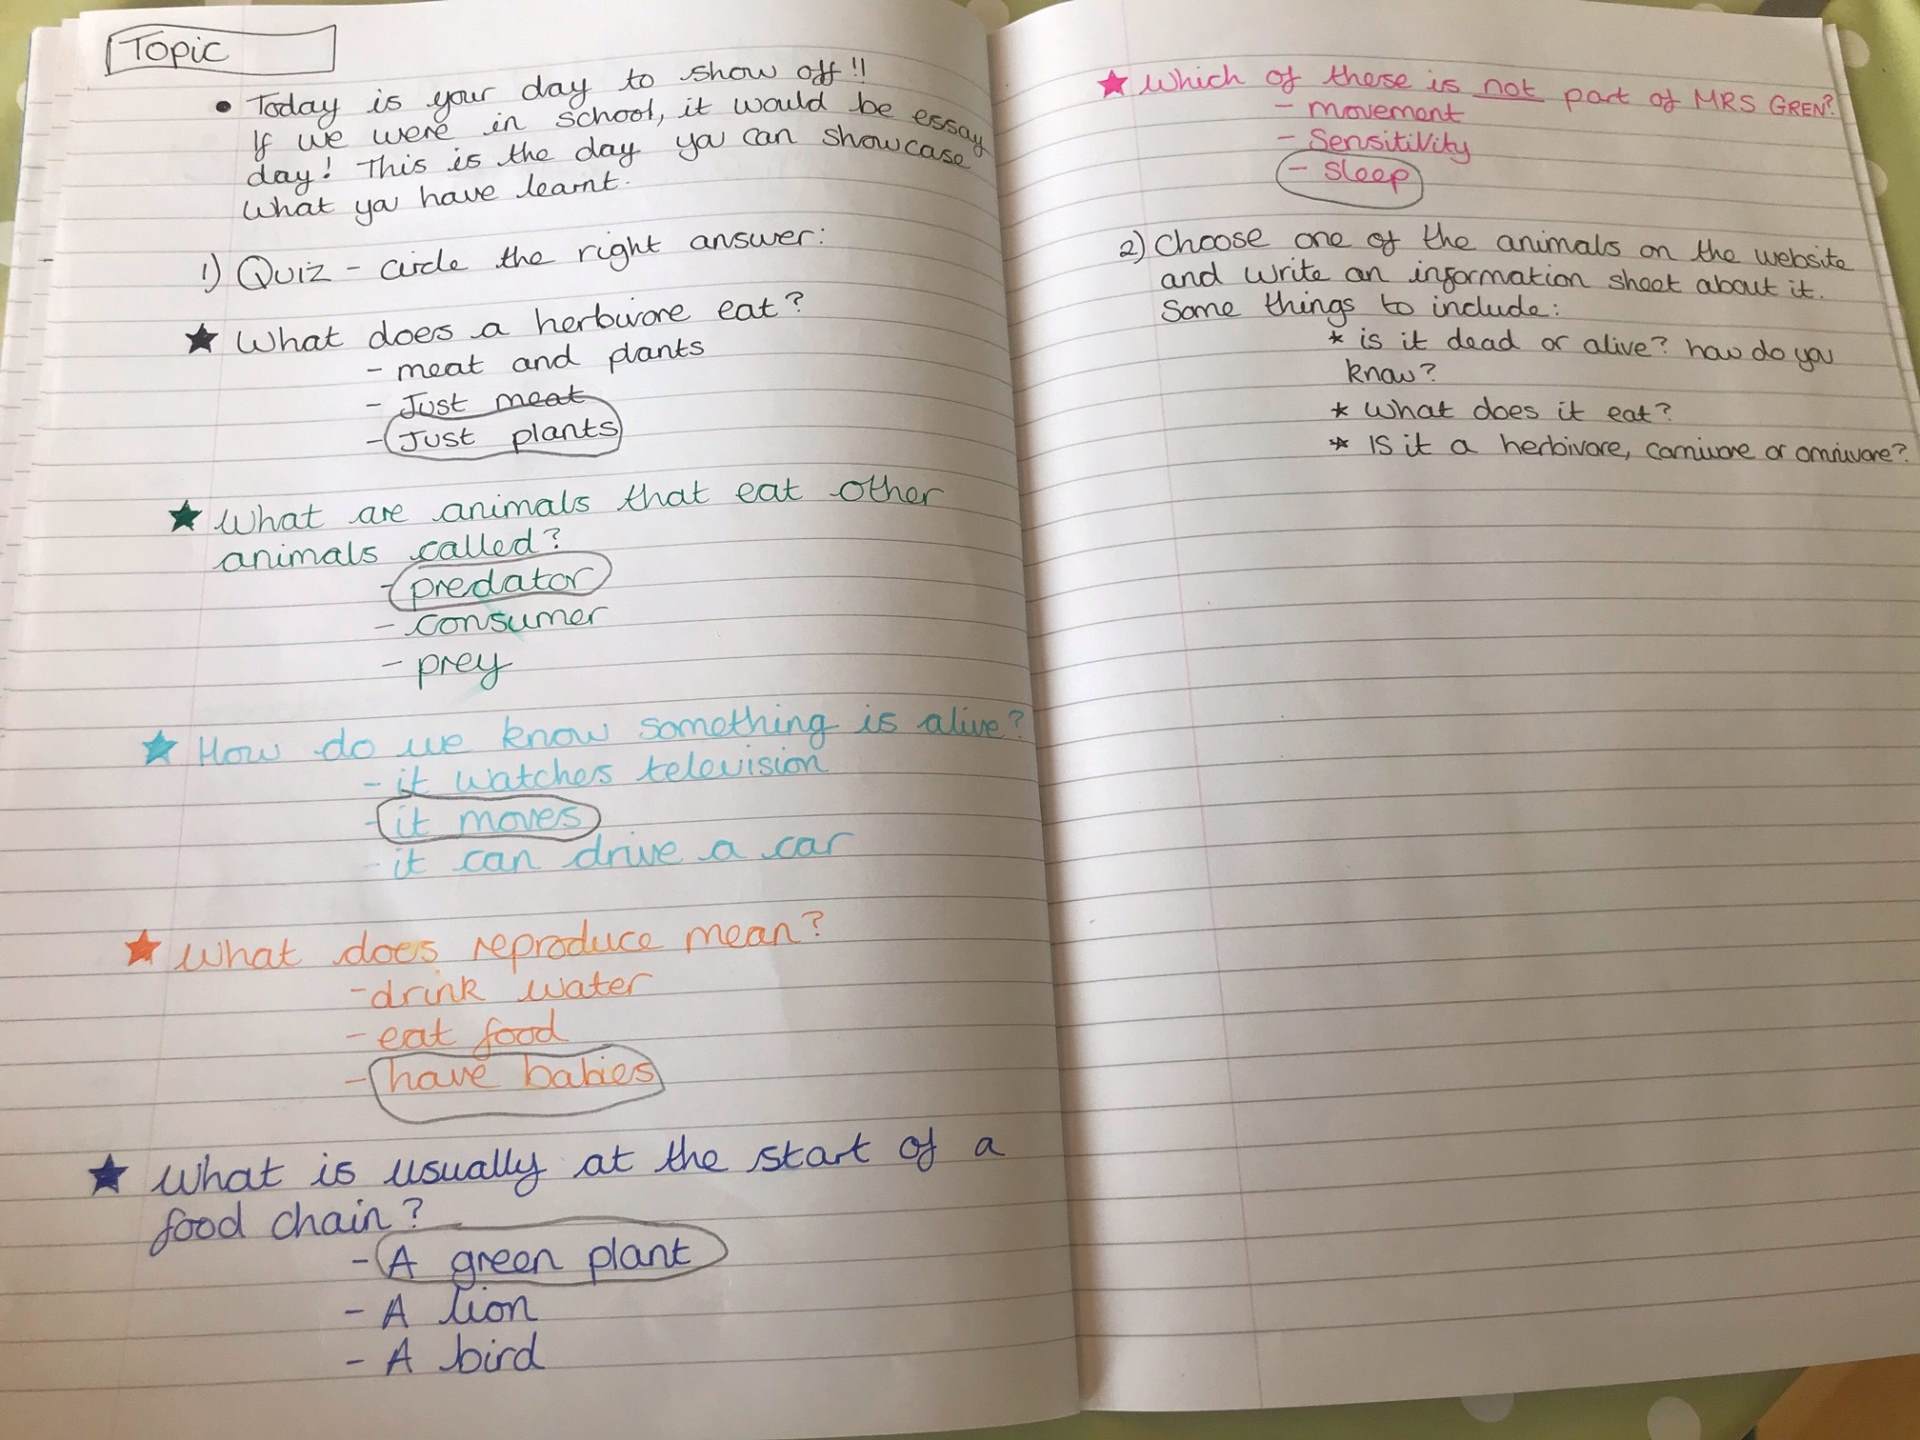 Topic
• Today is your day to show off!!
If we were in school, it would be essay
day! This is the day you can showcase
What you have learnt.
1) Quiz - circle the right answer:
★ What does a herbivore eat?
- meat and plants
- Just meat
- Just plants
★ What are animals that eat other
animals called?
- predator
- consumer
- prey
★ How do we know something is alive?
- it watches television
- it moves
- it can drive a car
★ What does reproduce mean?
- drink water
- eat food
- have babies
★ What is usually at the start of a
food chain?
- A green plant
- A lion
- A bird
★ Which of these is not part of MRS GREN?
- movement
- Sensitivity
- Sleep
2) Choose one of the animals on the website
and write an information sheet about it.
Some things to include:
* is it dead or alive? how do you
know?
* What does it eat?
* Is it a herbivore, carnivore or omnivore?